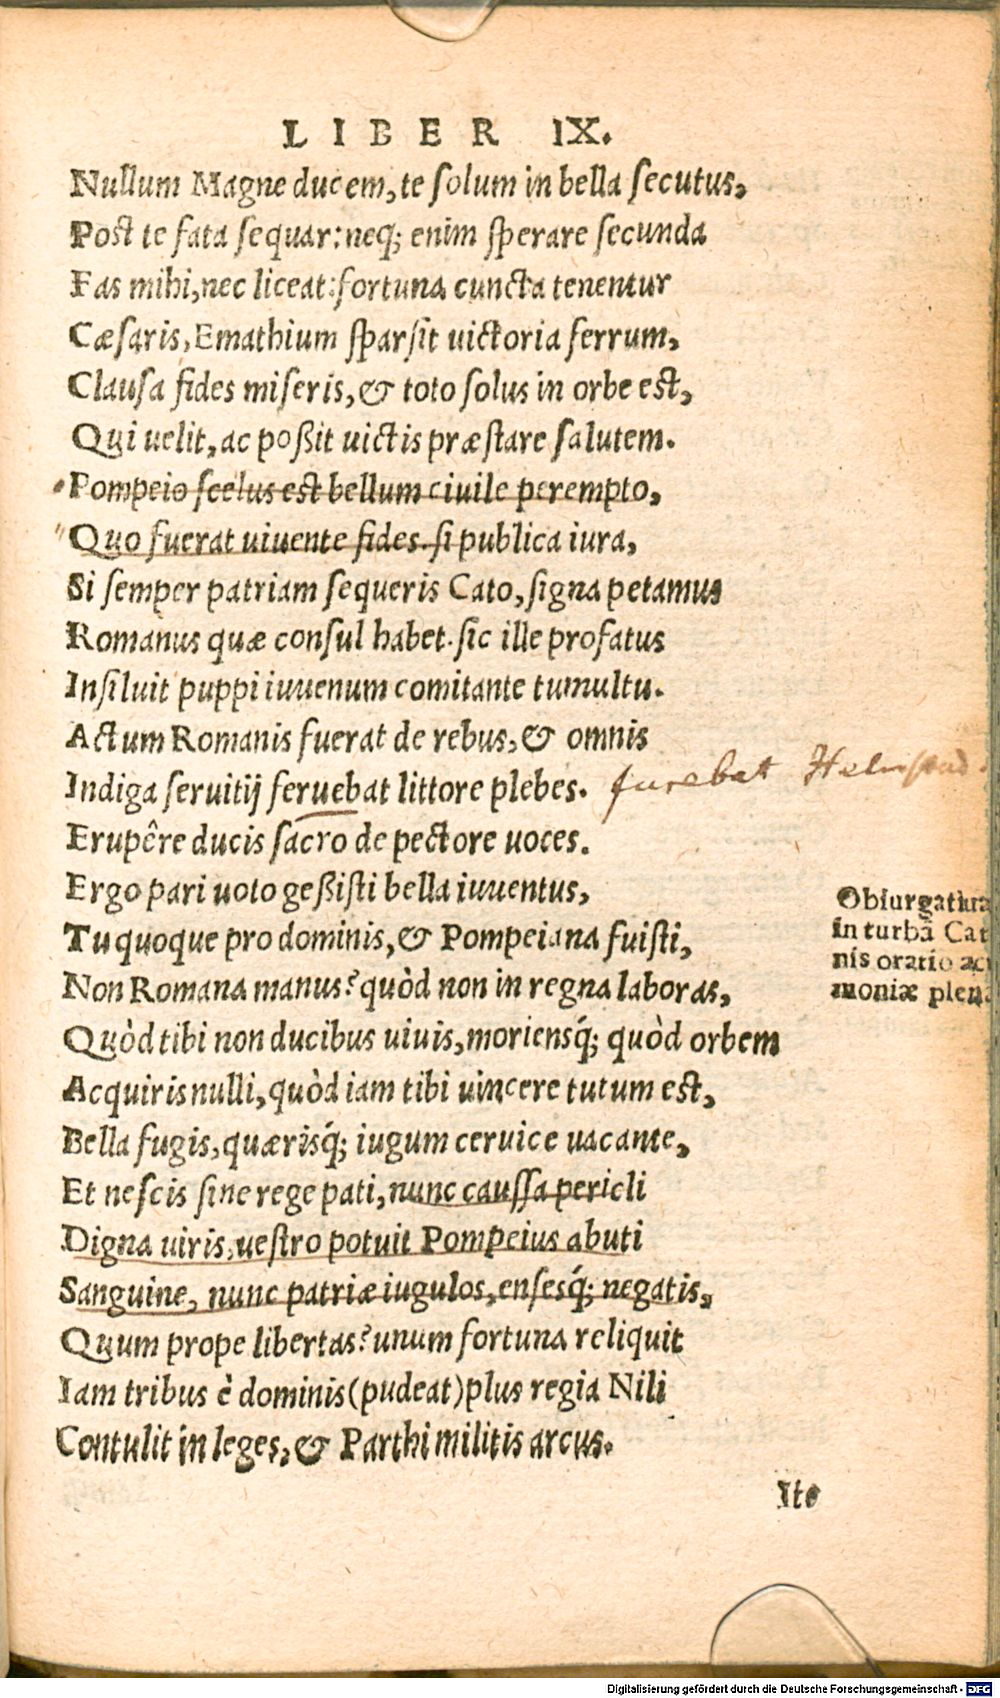 LIBER IX.
Nullum Magne ducem, te solum in bella secutus,
Post te fata sequar: neq; enim sperare secunda
Fas mihi, nec liceat: fortuna cuncta tenentur
Cæsaris, Emathium sparsit uictoria ferrum,
Clausa fides miseris, & toto solus in orbe est,
Qui uelit, ac poßit uictis præstare salutem.
Pompeio scelus est bellum ciuile perempto,
Quo fuerat uiuente fides. si publica iura,
Si semper patriam sequeris Cato, signa petamus
Romanus quæ consul habet. sic ille profatus
Insiluit puppi iuuenum comitante tumultu.
Actum Romanis fuerat de rebus, & omnis
Indiga seruitij feruebat littore plebes. furebat
Erupêre ducis sacro de pectore uoces.
Ergo pari uoto geßisti bella iuuentus,
Tu quoque pro dominis, & Pompeiana fuisti,
Non Romana manus? quòd non in regna laboras,
Quòd tibi non ducibus uiuis, moriensq́; quòd orbem
Acquiris nulli, quòd iam tibi uincere tutum est,
Bella fugis, quærisq́; iugum ceruice uacante,
Et nescis sine rege pati, nunc caussa pericli
Digna uiris, uestro potuit Pompeius abuti
Sanguine, nunc patriæ iugulos, ensesq́; negatis,
Quum prope libertas? unum fortuna reliquit
Iam tribus è dominis (pudeat) plus regia Nili
Contulit in leges, & Parthi militis arcus.
Obiurgatiua
in turbā Cat
nis oratio acri
moniæ plena
Ite
Digitalisierung gefördert durch die Deutsche Forschungsgemeinschaft - DFG